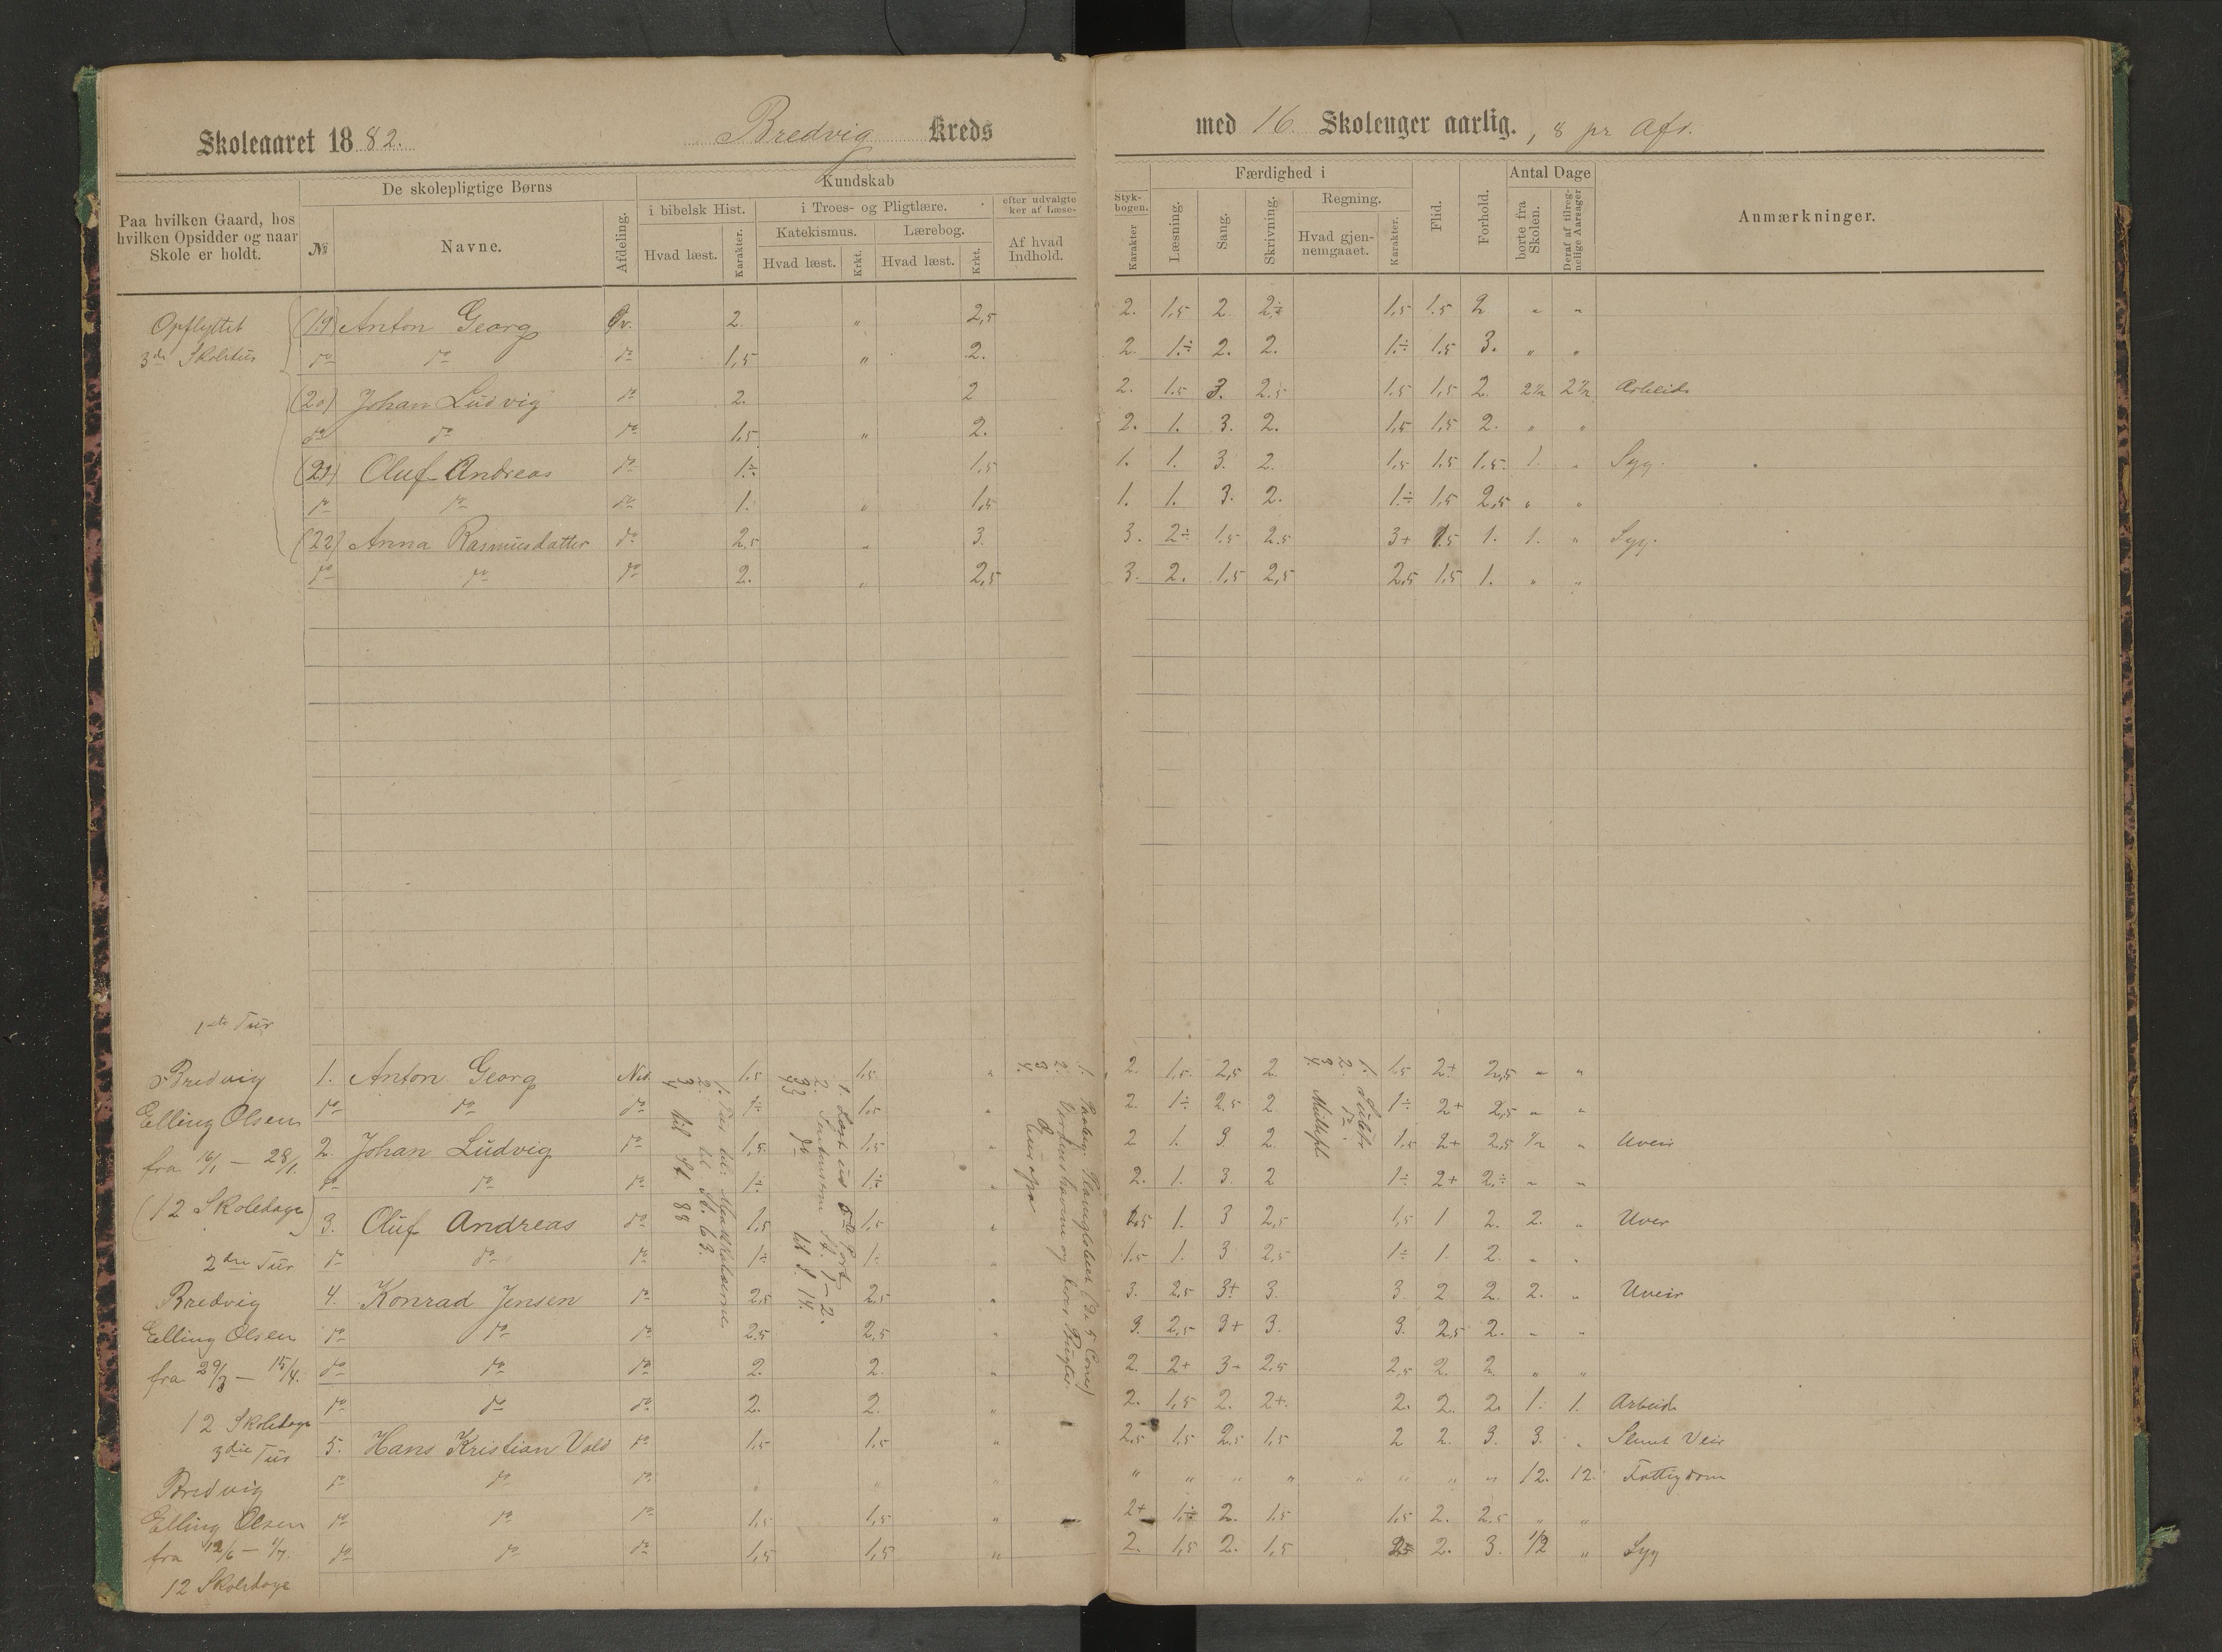 Skoleaaret 1882. Bredvig Kreds med 16 Skoleuger aarlig., 8 pr Afd.
Paa hvilken Gaard, hos hvilken Opsidder og naar Skole er holdt.
De skolepligtige Børns
№ Navne. Afdeling.
Kundskab
i bibelsk Hist. i Troes- og Pligtlære. efter udvalgte ker af Læse-
Hvad læst. Karakter. Katekismus. Hvad læst. Krkt. Lærebog. Hvad læst. Krkt. Af hvad Indhold.
Styk- bogen. Karakter
Færdighed i
Læsning. Sang. Skrivning. Regning. Hvad gjen- nemgaaet. Karakter.
Flid. Forhold. Antal Dage borte fra Skolen. Deraf af tilreg- nelige Aarsager
Anmærkninger.
Opflyttet
3die Skoletur
(19) Anton Georg Øv. 2. " 2,5 2. 1,5 2. 2÷ 1,5 1.5 2 " "
do do do 1,5 " 2. 2. 1.÷ 2. 2. 1.÷ 1.5 3. " "
(20) Johan Ludvig do 2. 2 2. 1.5 3. 2.5 1,5 1,5 2. 2½ 2½ Arbeide
do do do 1.5 " 2. 2. 1. 3. 2. 1,5 1,5 2. " "
(21) Oluf Andreas do 1.÷ 1,5 1. 1. 3. 2. 1,5 1.5 1.5 1. " Syg.
do do do 1. " 1,5 1. 1. 3. 2. 1÷ 1,5 2,5 " "
(22) Anna Rasmusdatter do 2,5 " 3. 3. 2÷ 1.5 2.5 3+ 1.5 1. 1. " Syg.
do do do 2. " 2,5 3. 2. 1,5 2,5 2,5 1,5 1. " "
1ste Tur
Bredvig
Elling Olsen
fra 16/1 — 28/1.
(12 Skoledage)
2den Tur
Bredvig
Elling Olsen
fra 29/3 — 15/4.
12 Skoledage
3die Tur
Bredvig
Elling Olsen
fra 12/6 — 1/7.
12 Skoledage
1. Anton Georg Ned. 1.5 1,5 " 2. 1,5. 2,5 2. 1,5 2+ 2,5 " "
do do do 1÷ 1,5 " 2. 1÷ 2.5 2 1÷ 2+ 2,5 " "
2. Johan Ludvig do 1,5 1,5 " 2 1. 3. 2. 1,5 2+ 2,5 ½ " Uveir
do do do 1÷ 1÷ " 2. 1. 3. 2 1÷ 2+ 2÷ " "
3. Oluf Andreas do 1,5 1,5 " 1. 3 2,5 1,5 1 2. 2. " Uver
do do do 1÷ 1. " 1.5 1. 3 2,5 1÷ 1. 2. " "
4. Konrad Jensen do 2,5 2,5 " 3. 2,5 3+ 3. 3. 2 2. 2. " Uveir
do do do 2.5 2,5 " 3. 2,5 3+ 3. 3. 2,5 2. " "
do do do 2. 2. " 2. 2+ 3+ 2.5 2,5 2. 2. " "
do do do 2. 2. " 2. 1,5 2. 2+. 2. 2. 2. 1. 1. Arbeide
5. Hans Kristian Vold do 1,5 1,5 " 2,5 1,5 2.5 1,5 2 2. 3. 3. " Slemt Veir
do do do " " " " " " " " " " " 12. 12. Fattigdom
do do do 1,5 1,5 " 2+ 1÷ 2. 1.5 1,5 2. 2.5 " "
do do do 1,5 1,5 " 2. 1,5 2. 1,5 2. 3. 1/2 " Syg
1.
2. til St. 63.
3
4 til St. 88
1.
2. St. 1–2.
3 do til St. 14.
1.
2.
3
4. Europa
1.
2. do
3
4.